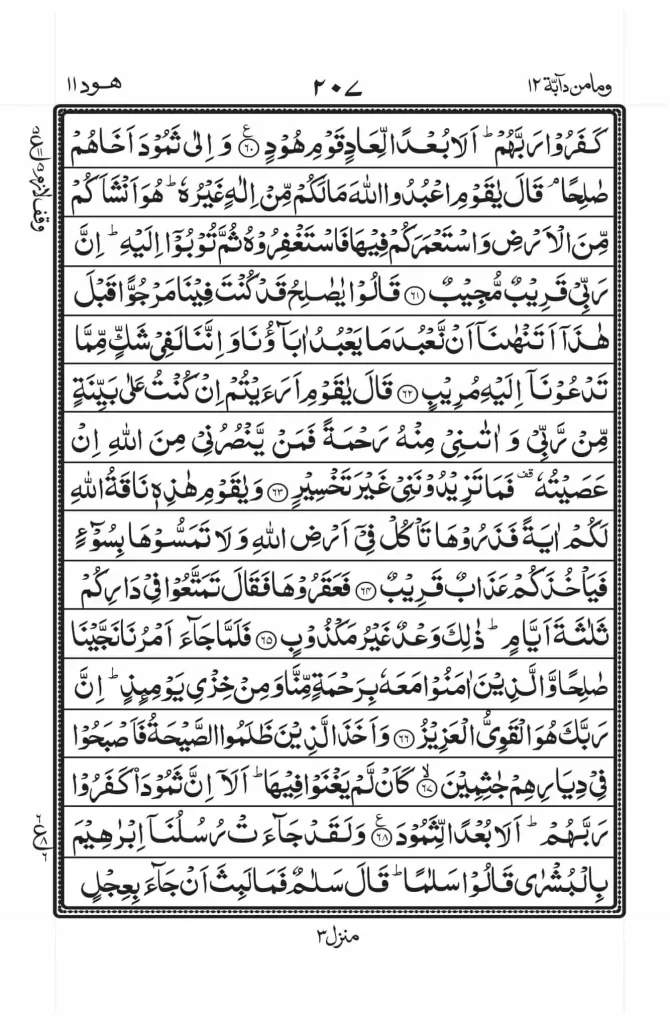 وما من دآبّة ١٢
٢٠٧
هود ١١
كَفَرُوْا رَبَّهُمْ ؕ اَلَا بُعْدًا لِّعَادٍ قَوْمِ هُوْدٍ ﴿٦٠﴾ ع وَ اِلٰى ثَمُوْدَ اَخَاهُمْ
صٰلِحًا ۘ قَالَ يٰقَوْمِ اعْبُدُوا اللّٰهَ مَا لَكُمْ مِّنْ اِلٰهٍ غَيْرُهٗ ؕ هُوَ اَنْشَاَكُمْ
مِّنَ الْاَرْضِ وَ اسْتَعْمَرَكُمْ فِيْهَا فَاسْتَغْفِرُوْهُ ثُمَّ تُوْبُوْۤا اِلَيْهِ ؕ اِنَّ
رَبِّيْ قَرِيْبٌ مُّجِيْبٌ ﴿٦١﴾ قَالُوْا يٰصٰلِحُ قَدْ كُنْتَ فِيْنَا مَرْجُوًّا قَبْلَ
هٰذَاۤ اَتَنْهٰىنَاۤ اَنْ نَّعْبُدَ مَا يَعْبُدُ اٰبَآؤُنَا وَ اِنَّنَا لَفِيْ شَكٍّ مِّمَّا
تَدْعُوْنَاۤ اِلَيْهِ مُرِيْبٍ ﴿٦٢﴾ قَالَ يٰقَوْمِ اَرَءَيْتُمْ اِنْ كُنْتُ عَلٰى بَيِّنَةٍ
مِّنْ رَّبِّيْ وَ اٰتٰىنِيْ مِنْهُ رَحْمَةً فَمَنْ يَّنْصُرُنِيْ مِنَ اللّٰهِ اِنْ
عَصَيْتُهٗ قف فَمَا تَزِيْدُوْنَنِيْ غَيْرَ تَخْسِيْرٍ ﴿٦٣﴾ وَ يٰقَوْمِ هٰذِهٖ نَاقَةُ اللّٰهِ
لَكُمْ اٰيَةً فَذَرُوْهَا تَاْكُلْ فِيْۤ اَرْضِ اللّٰهِ وَ لَا تَمَسُّوْهَا بِسُوْٓءٍ
فَيَاْخُذَكُمْ عَذَابٌ قَرِيْبٌ ﴿٦٤﴾ فَعَقَرُوْهَا فَقَالَ تَمَتَّعُوْا فِيْ دَارِكُمْ
ثَلٰثَةَ اَيَّامٍ ؕ ذٰلِكَ وَعْدٌ غَيْرُ مَكْذُوْبٍ ﴿٦٥﴾ فَلَمَّا جَآءَ اَمْرُنَا نَجَّيْنَا
صٰلِحًا وَّ الَّذِيْنَ اٰمَنُوْا مَعَهٗ بِرَحْمَةٍ مِّنَّا وَ مِنْ خِزْيِ يَوْمِئِذٍ ؕ اِنَّ
رَبَّكَ هُوَ الْقَوِيُّ الْعَزِيْزُ ﴿٦٦﴾ وَ اَخَذَ الَّذِيْنَ ظَلَمُوا الصَّيْحَةُ فَاَصْبَحُوْا
فِيْ دِيَارِهِمْ جٰثِمِيْنَ ﴿٦٧﴾ ۙ كَاَنْ لَّمْ يَغْنَوْا فِيْهَا ؕ اَلَاۤ اِنَّ ثَمُوْدَاۡ كَفَرُوْا
رَبَّهُمْ ؕ اَلَا بُعْدًا لِّثَمُوْدَ ﴿٦٨﴾ ع وَ لَقَدْ جَآءَتْ رُسُلُنَاۤ اِبْرٰهِيْمَ
بِالْبُشْرٰى قَالُوْا سَلٰمًا ؕ قَالَ سَلٰمٌ فَمَا لَبِثَ اَنْ جَآءَ بِعِجْلٍ
وقف لازم
منزل ٣